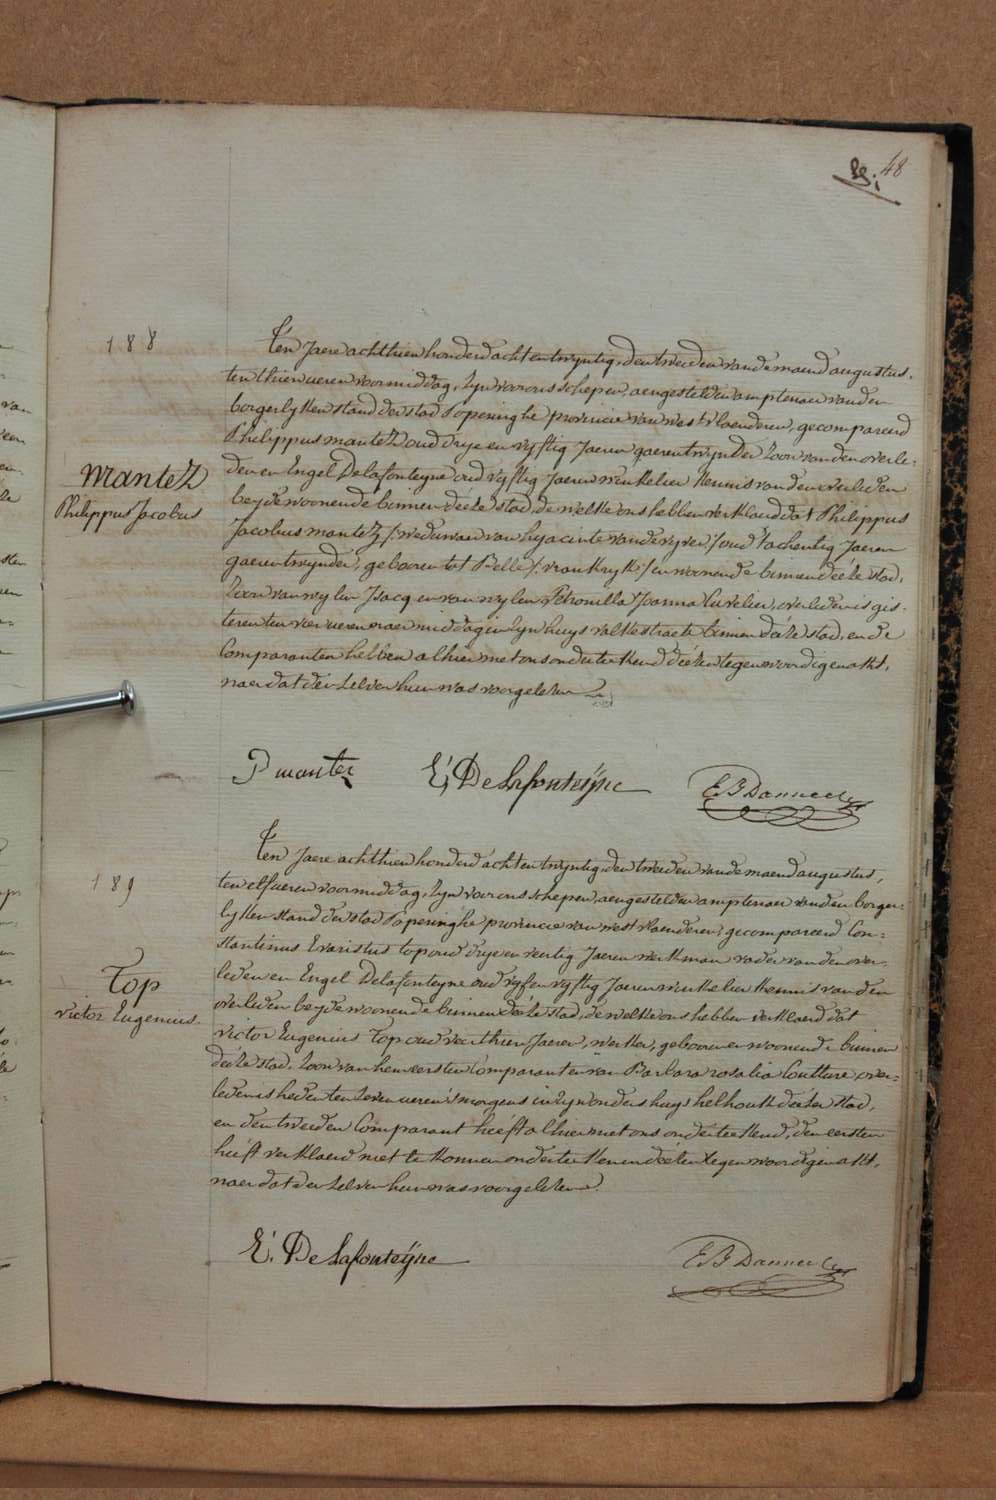 48
188
Ten Jaere achthien honderd acht en twyntig, den tweeden van de maend augustus,
ten thien ueren voormiddag, zyn voor ons schepen, aengestelden amptenaer van den
borgerlyken stand der stad Poperinghe provincie van westvlaenderen, gecompareerd
Philippus mantez oud drye en vyftig Jaeren gaerentwynder zoon van den overle:
Mantez
den en Engel Delafonteyne oud vyftig Jaeren winkelier kennis van den overleden
Philippus Jacobus
beyde woonende binnen deeze stad, de welke ons hebben verklaerd dat Philippus
Jacobus mantez /: weduwaer van hyacinte vandevyver :/ oud tachentig Jaeren
gaerentwynder, gebooren tot Belle /: vrankryk :/ en woonende binnen deéze stad,
zoon van wylen Jsacq en van wylen Petronilla Joanna Cuvelier, overleden is gis-
teren ten vier ueren naermiddag in zyn huys valkestraete binnen deéze stad, en de
Comparanten hebben alhier met ons onderteekend deézen tegenwoordigen akt,
naer dat den zelven hun was voorgelezen
P mantez E, De Lafonteÿne E B Danneel
189
Ten Jaere achthien honderd acht en twyntig, den tweeden van de maend augustus,
ten elf ueren voormiddag, zyn voor ons schepen, aengestelden amptenaer van den borger-
lyken stand der stad Poperinghe provincie van westvlaenderen, gecompareerd Con:
stantinus Evaristus top oud drye en veertig Jaeren werkman vader van den over-
Top
leden en Engel Delafonteyne oud vyf en vyftig Jaeren winkelier kennis van den
victor Eugenius.
overleden beyde woonende binnen deéze stad, de welke ons hebben verklaerd dat
victor Eugenius Top oud veerthien Jaeren, werker, gebooren en woonende binnen
deéze stad, zoon van hem eersten Comparant en van Barbara rosalia Coutture, over-
leden is heden ten zeven ueren 's morgens in zyn ouders huys helhoek deézer stad,
en den tweeden Comparant heéft alhier met ons onderteekend, den eersten
heéft verklaerd niet te konnen onderteekenen deézen tegenwoordigen akt,
naer dat den zelven hun was voorgelezen.
E. De Lafonteÿne E B Danneel